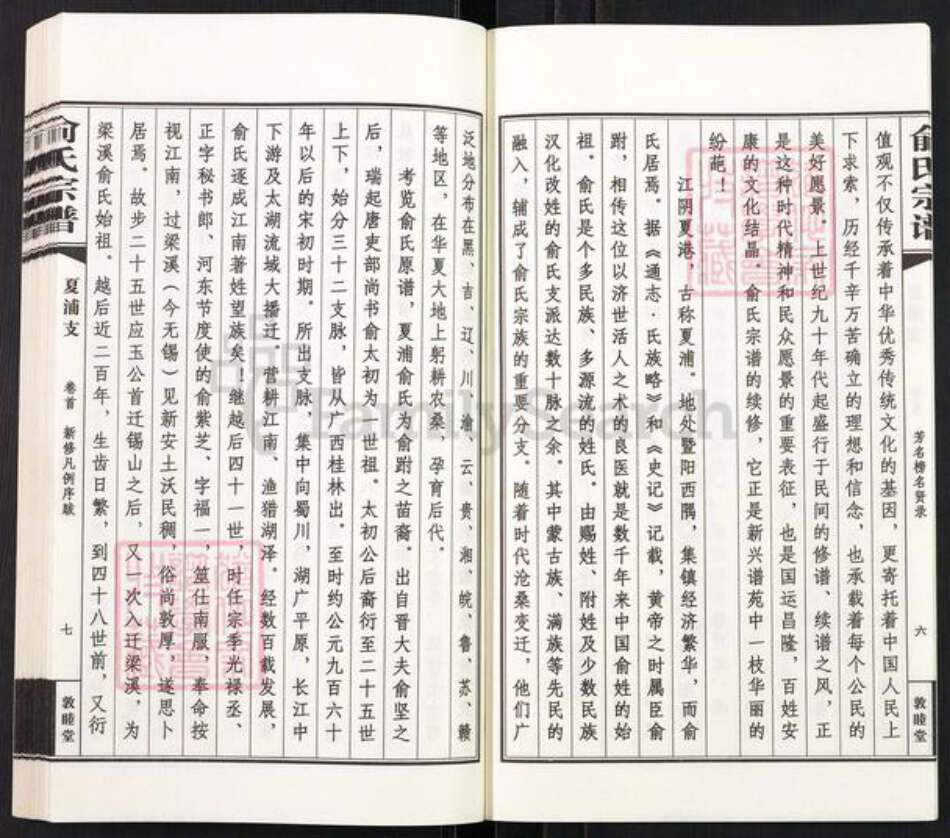 俞氏宗谱
芳名榜名贤录
六
敦睦堂
值观不仅传承着中华优秀传统文化的基因，更寄托着中国人民上
下求索，历经千辛万苦确立的理想和信念，也承载着每个公民的
美好愿景。上世纪九十年代起盛行于民间的修谱、续谱之风，正
是这种时代精神和民众愿景的重要表征，也是国运昌隆，百姓安
康的文化结晶。俞氏宗谱的续修，它正是新兴谱苑中一枝华丽的
纷葩！
江阴夏港，古称夏浦。地处暨阳西隅，集镇经济繁华，而俞
氏居焉。据《通志·氏族略》和《史记》记载，黄帝之时属臣俞
跗，相传这位以济世活人之术的良医就是数千年来中国俞姓的始
祖。俞氏是个多民族、多源流的姓氏。由赐姓、附姓及少数民族
汉化改姓的俞氏支派达数十脉之余。其中蒙古族、满族等先民的
融入，辅成了俞氏宗族的重要分支。随着时代沧桑变迁，他们广
泛地分布在黑、吉、辽、川、渝、云、贵、湘、皖、鲁、苏、赣
等地区，在华夏大地上躬耕农桑，孕育后代。
考览俞氏原谱，夏浦俞氏为俞跗之苗裔。出自晋大夫俞坚之
后，瑞起唐吏部尚书俞太初为一世祖。太初公后裔衍至二十五世
上下，始分三十二支脉，皆从广西桂林出。至时约公元九百六十
年以后的宋初时期。所出支脉，集中向蜀川，湖广平原，长江中
下游及太湖流域大播迁，营耕江南、渔猎湖泽。经数百载发展，
俞氏逐成江南著姓望族矣！继越后四十一世，时任宗季光禄丞、
正字秘书郎、河东节度使的俞紫芝、字福一，筮仕南服，奉命按
视江南，过梁溪（今无锡）见新安土沃民稠，俗尚敦厚，遂思卜
居焉。故步二十五世应玉公首迁锡山之后，又一次入迁梁溪，为
梁溪俞氏始祖。越后近二百年，生齿日繁，到四十八世前，又衍
俞氏宗谱
夏浦支
卷首
新修凡例序跋
七
敦睦堂
FamilySearch